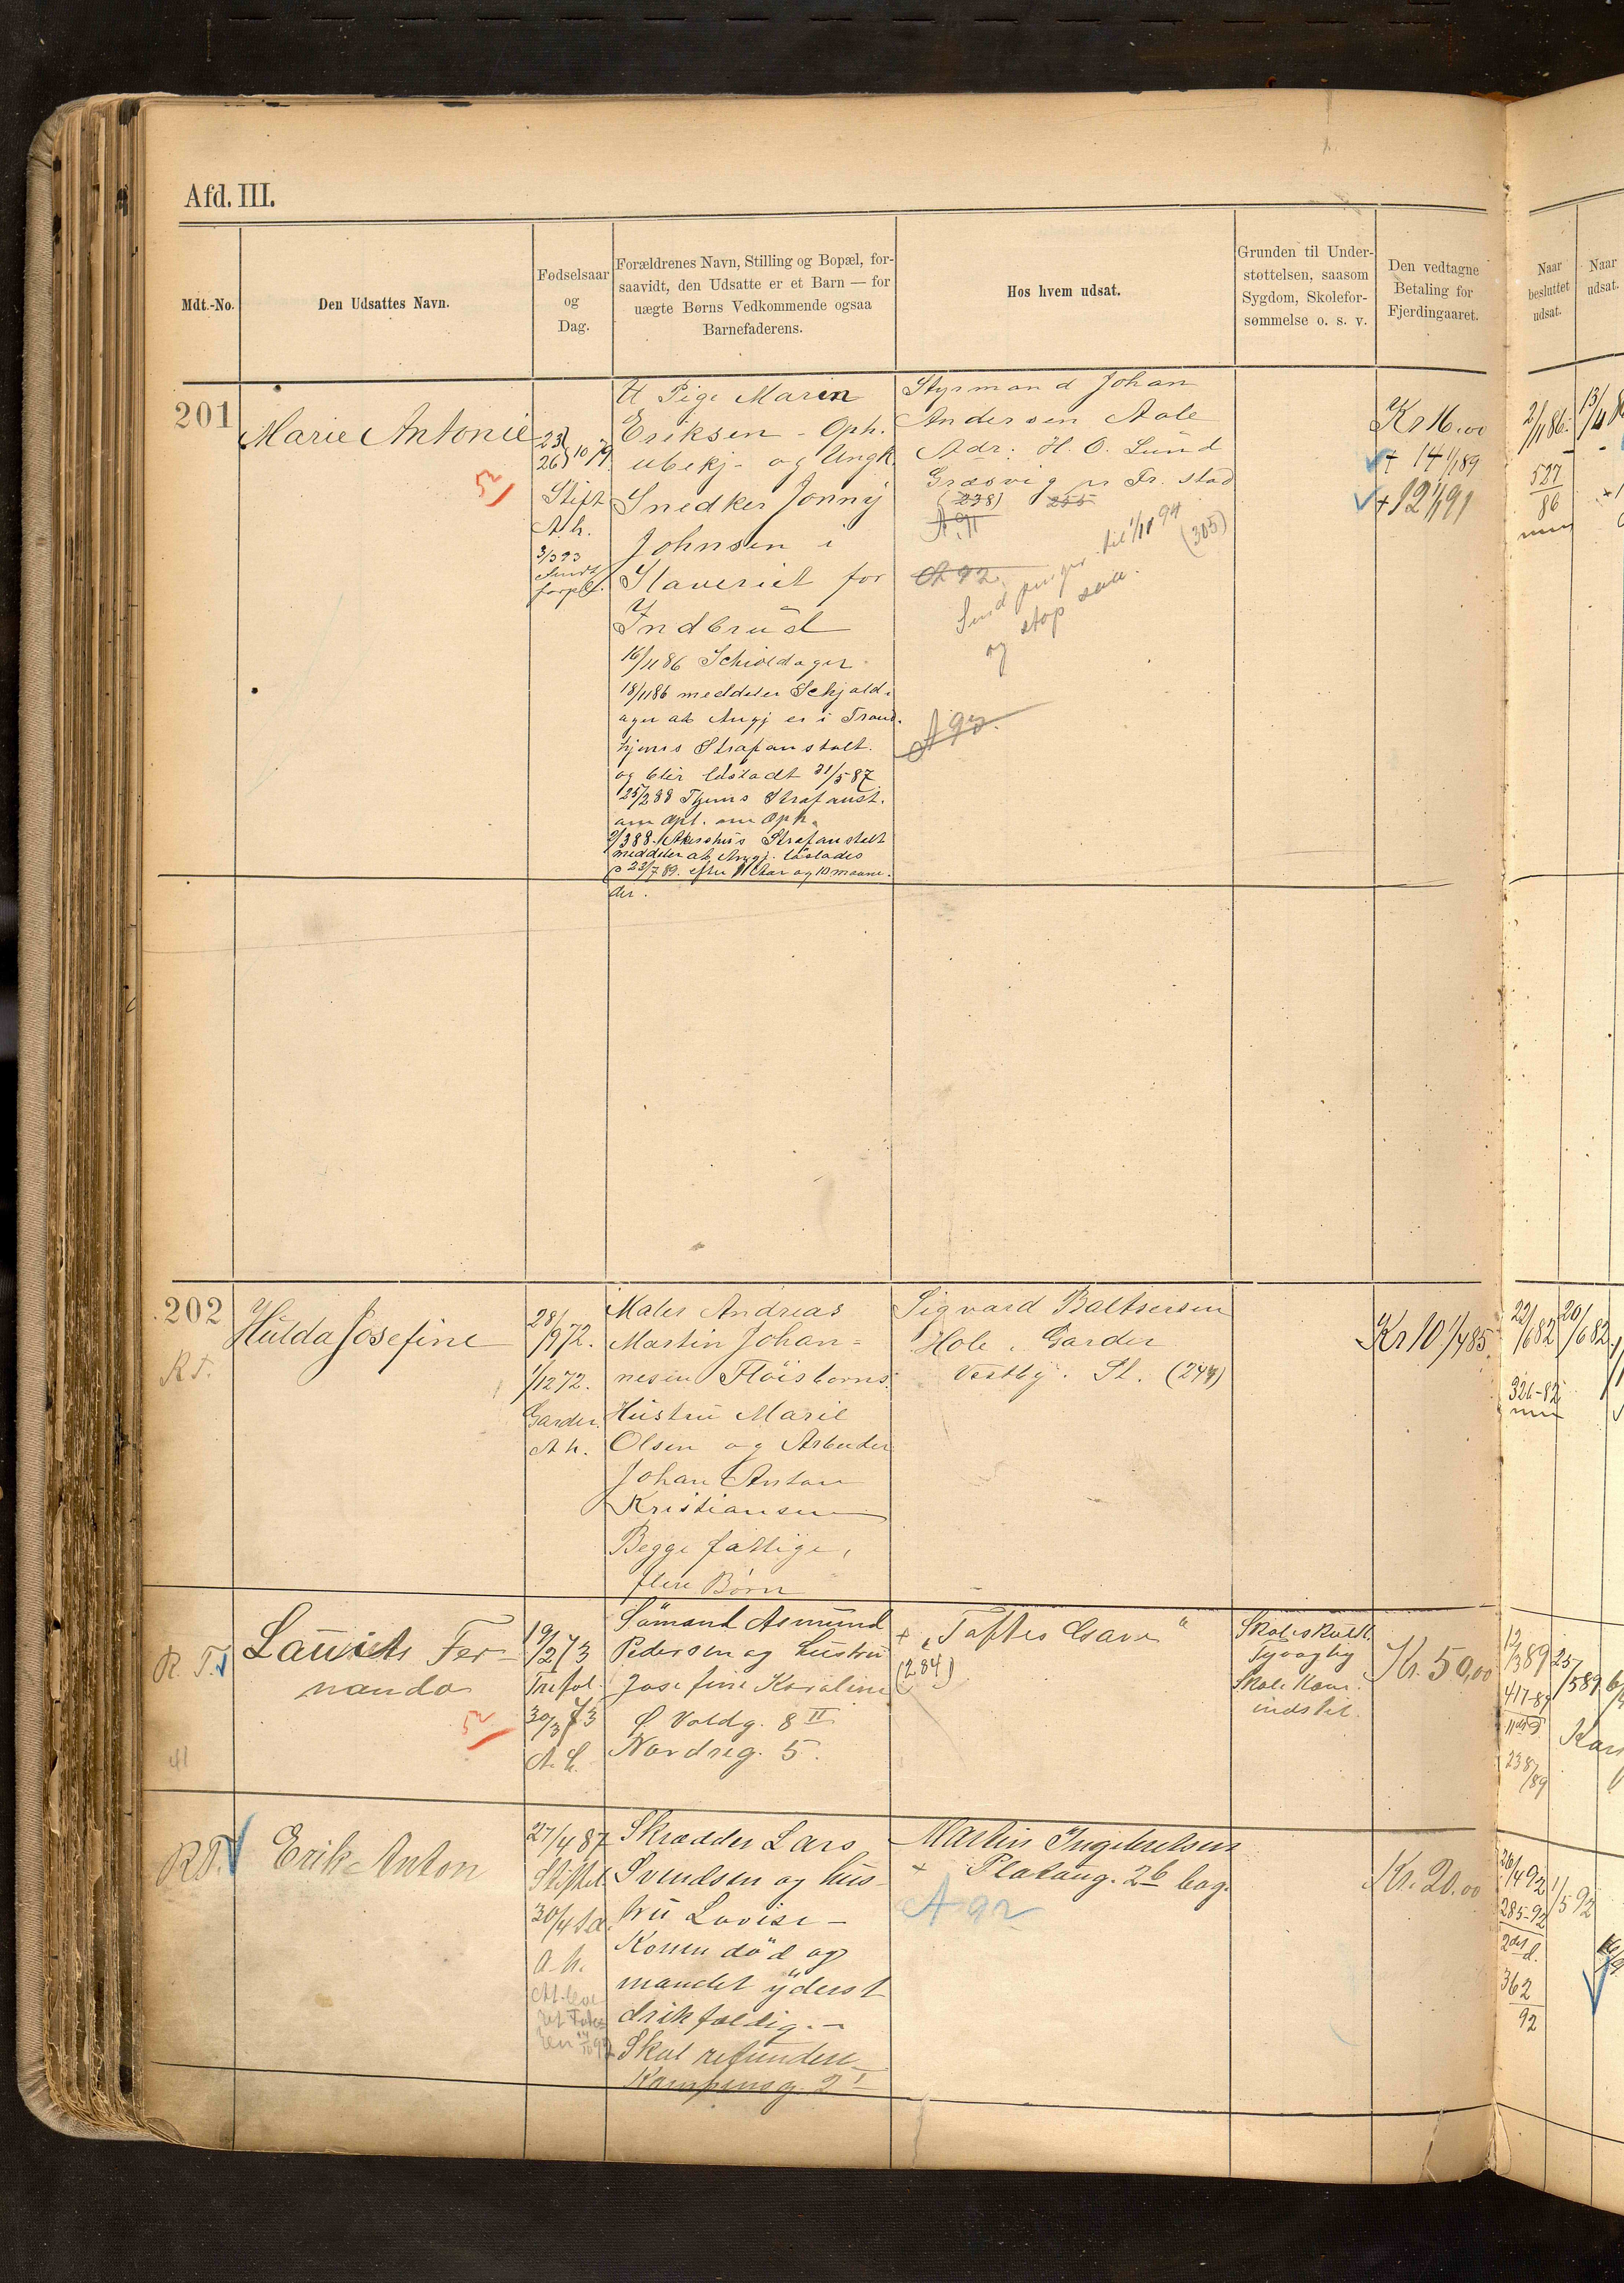 Afd. III.
Mdt.-No.
Den Udsattes Navn.
Fødselsaar
og
Dag.
Forældrenes Navn, Stilling og Bopæl, for-
saavidt, den Udsatte er et Barn — for
uægte Børns Vedkommende ogsaa
Barnefaderens.
Hos hvem udsat.
Grunden til Under-
støttelsen, saasom
Sygdom, Skolefor-
sømmelse o. s. v.
Den vedtagne
Betaling for
Fjerdingaaret.
Naar
besluttet
udsat.
Naar
udsat.
201
Marie Antonie
23/
26/10 79
Stift
A. h.
3/3 93
forpl.
U Pige Marin
Eriksen - Oph.
ubekj - og Ungk.
Snedker Jonny
Johnsen i
Slaveriet for
Indbrud
16/11 86 Schioldager
18/11 86 meddeler Schjold-
ager at Angj er i Trond-
hjems Strafanstalt.
og blir løsladt 31/5 87
25/2 88 Thjems Strafanst.
om Opl. om Oph.
2/3 88. Akershus Strafanstalt
meddeler at Angj. løslades
p 23/7 89. efter 1 Aar og 10 maane-
der.
Styrmand Johan
Andersen Aale
Adr: H. O. Lund
Græsvig pr Fr. stad
(238) 255
A 91
A 92
Send penger til 1/11 94
(305)
og stop saa.
A 93.
Kr 16,00
+ 14 1/1 89
+ 12 1/1 91
2/11 86.
527
86
202
R T.
Hulda Josefine
28/
/9 72.
1/12 72.
Garder.
A h.
Maler Andreas
Martin Johan-
nesen Fløisborns
Hustru Marie
Olsen og Arbeider
Johan Anton
Kristiansen
Begge fattige,
flere Børn
Sigvard Baltsersen
Hole, Garder
Vestby. St. (244)
Kr 10 1/4 85.
22/6 82
20/6 82
326-82
R. T.
41
Laurits Fer-
nando
19/
/2 73
Trefol.
30/3 73
A. h.
Sømand Asmund
Pedersen og hustru
Josefine Karoline
Ø Voldg. 8 II
Nordreg. 5.
+ "Toftes Gave"
(284)
Skoleskulk.
Tyvagtig
Skole Kom.
indstil.
Kr. 50,00
12/3 89
25/5 89
417-89
238/89
R T.
Erik Anton
27/4 87
Stiftet
30/4
A. h.
Skrædder Lars
Svendsen og hus-
tru Lovise -
Konen død og
mandet yderst
drikfældig. -
Skal refundere
Kampensg. 2 I
Martin Ingebretsen
+ Platoug. 2 b bag.
A 92
Kr. 20.00
20/4 92
1/5 92
285-92
2det d.
362
92